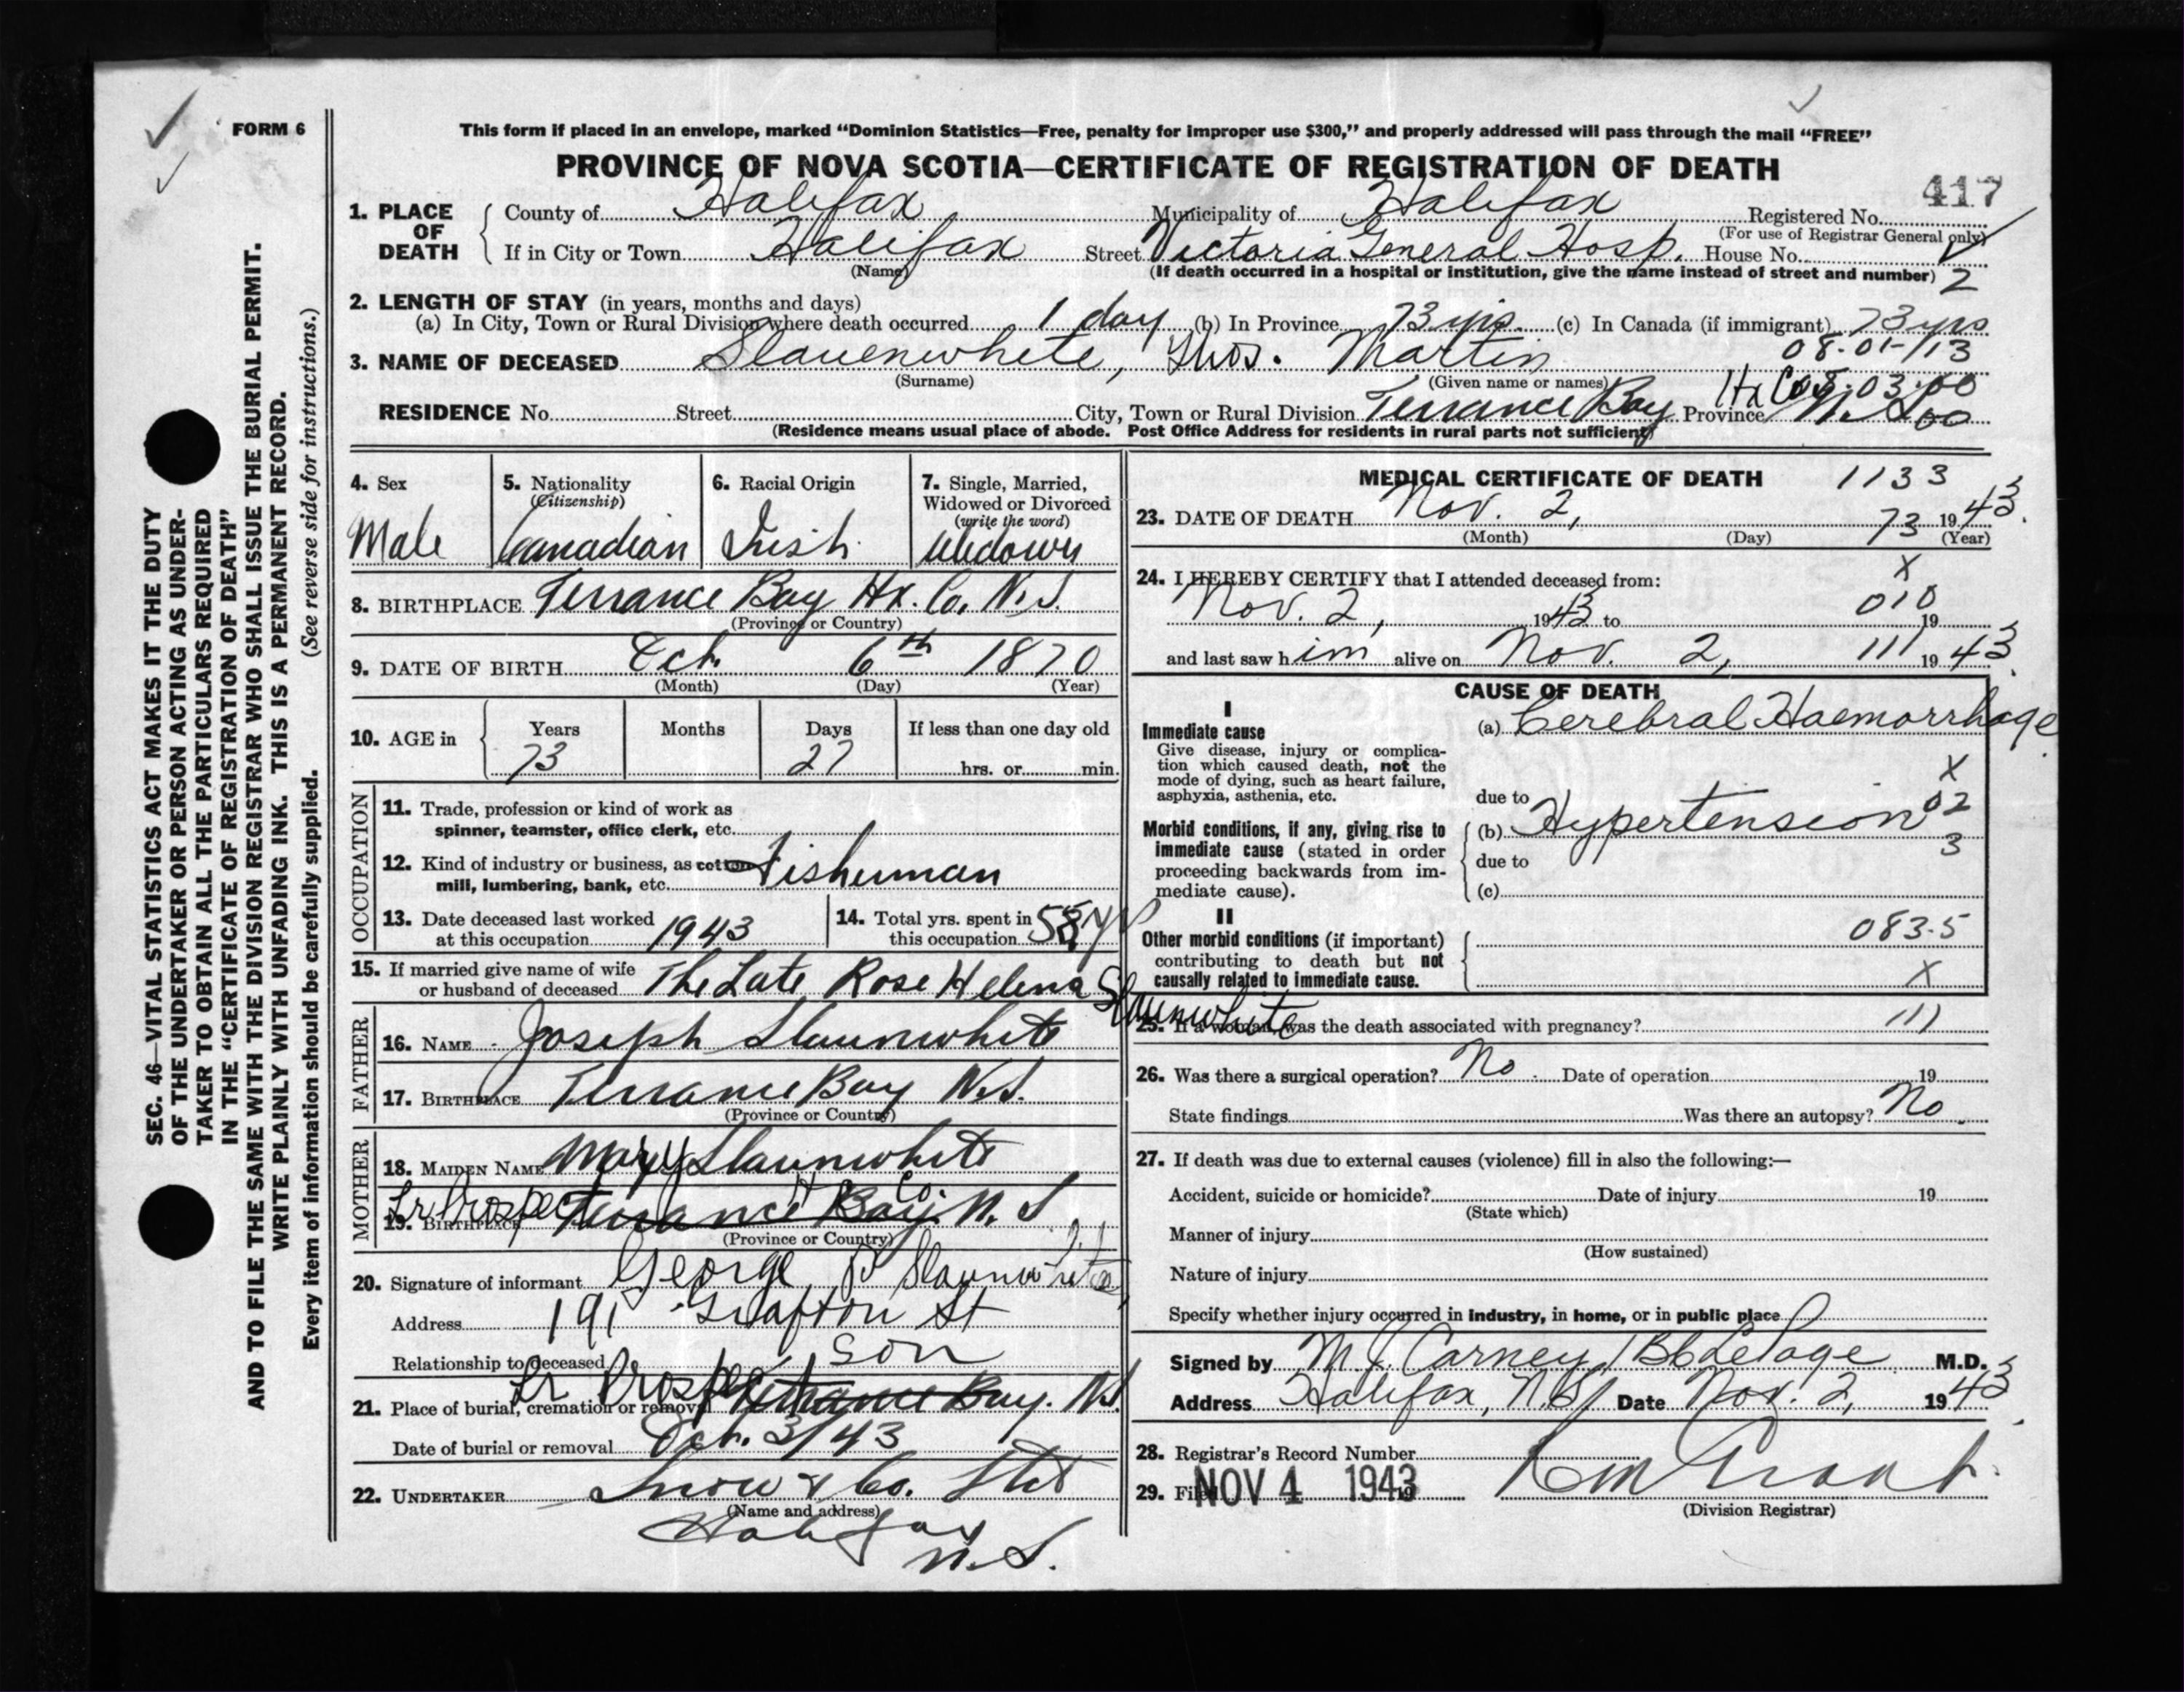 FORM 6
This form if placed in an envelope, marked “Dominion Statistics—Free, penalty for improper use $300,” and properly addressed will pass through the mail “FREE”
PROVINCE OF NOVA SCOTIA—CERTIFICATE OF REGISTRATION OF DEATH
417
1. PLACE OF DEATH County of Halifax Municipality of Halifax Registered No.
(For use of Registrar General only)
If in City or Town Halifax Street Victoria General Hosp. House No.
(Name) (If death occurred in a hospital or institution, give the name instead of street and number) 2
2. LENGTH OF STAY (in years, months and days)
(a) In City, Town or Rural Division where death occurred 1 day (b) In Province 73 yrs. (c) In Canada (if immigrant) 73 yrs
08-01-/13
3. NAME OF DECEASED Slauenwhite, Thos. Martin
(Surname) (Given name or names)
Hx Co 03.00
RESIDENCE No. Street City, Town or Rural Division Terrance Bay Province N.S. 00
(Residence means usual place of abode. Post Office Address for residents in rural parts not sufficient)
4. Sex
Male
5. Nationality
(Citizenship)
Canadian
6. Racial Origin
Irish
7. Single, Married,
Widowed or Divorced
(write the word)
Widower
8. BIRTHPLACE Terrance Bay Hx. Co. N.S.
(Province or Country)
9. DATE OF BIRTH Oct. 6th 1870
(Month) (Day) (Year)
10. AGE in Years Months Days If less than one day old
73 27 hrs. or min.
OCCUPATION
11. Trade, profession or kind of work as
spinner, teamster, office clerk, etc.
12. Kind of industry or business, as cotton
mill, lumbering, bank, etc. Fisherman
13. Date deceased last worked
at this occupation 1943
14. Total yrs. spent in
this occupation 58 yr
15. If married give name of wife
or husband of deceased The Late Rose Helena Slaunwhite
FATHER
16. NAME Joseph Slaunwhite
17. BIRTHPLACE Terrance Bay N.S.
(Province or Country)
MOTHER
18. MAIDEN NAME Mary Slaunwhite
19. BIRTHPLACE Lr Prospect Terrance Bay N.S.
(Province or Country)
20. Signature of informant George P Slaunwhite
Address 191 Grafton St
Relationship to deceased son
21. Place of burial, cremation or removal Lr Prospect Terrance Bay. N.S.
Date of burial or removal Oct. 3/43
22. UNDERTAKER Snow & Co. Ltd
(Name and address)
Halifax
N.S.
MEDICAL CERTIFICATE OF DEATH 1133
23. DATE OF DEATH Nov. 2, 73 1943.
(Month) (Day) (Year)
24. I HEREBY CERTIFY that I attended deceased from: X
010
Nov. 2, 1943 to 19
and last saw him alive on Nov. 2, 111 1943.
CAUSE OF DEATH
I
Immediate cause
Give disease, injury or complica-
tion which caused death, not the
mode of dying, such as heart failure,
asphyxia, asthenia, etc.
(a) Cerebral Haemorrhage
X
due to
02
Morbid conditions, if any, giving rise to
immediate cause (stated in order
proceeding backwards from im-
mediate cause).
(b) Hypertension
3
due to
(c)
II
Other morbid conditions (if important)
contributing to death but not
causally related to immediate cause.
083.5
X
25. If a woman, was the death associated with pregnancy? 111
26. Was there a surgical operation? No. Date of operation 19
State findings Was there an autopsy? No.
27. If death was due to external causes (violence) fill in also the following:—
Accident, suicide or homicide? Date of injury 19
(State which)
Manner of injury
(How sustained)
Nature of injury
Specify whether injury occurred in industry, in home, or in public place
Signed by M.J. Carney / LePage M.D.
Address Halifax, N.S. Date Nov. 2, 1943.
28. Registrar's Record Number
29. Filed NOV 4 1943 Grant
(Division Registrar)
SEC. 46—VITAL STATISTICS ACT MAKES IT THE DUTY
OF THE UNDERTAKER OR PERSON ACTING AS UNDER-
TAKER TO OBTAIN ALL THE PARTICULARS REQUIRED
IN THE “CERTIFICATE OF REGISTRATION OF DEATH”
AND TO FILE THE SAME WITH THE DIVISION REGISTRAR WHO SHALL ISSUE THE BURIAL PERMIT.
WRITE PLAINLY WITH UNFADING INK. THIS IS A PERMANENT RECORD.
Every item of information should be carefully supplied. (See reverse side for instructions.)